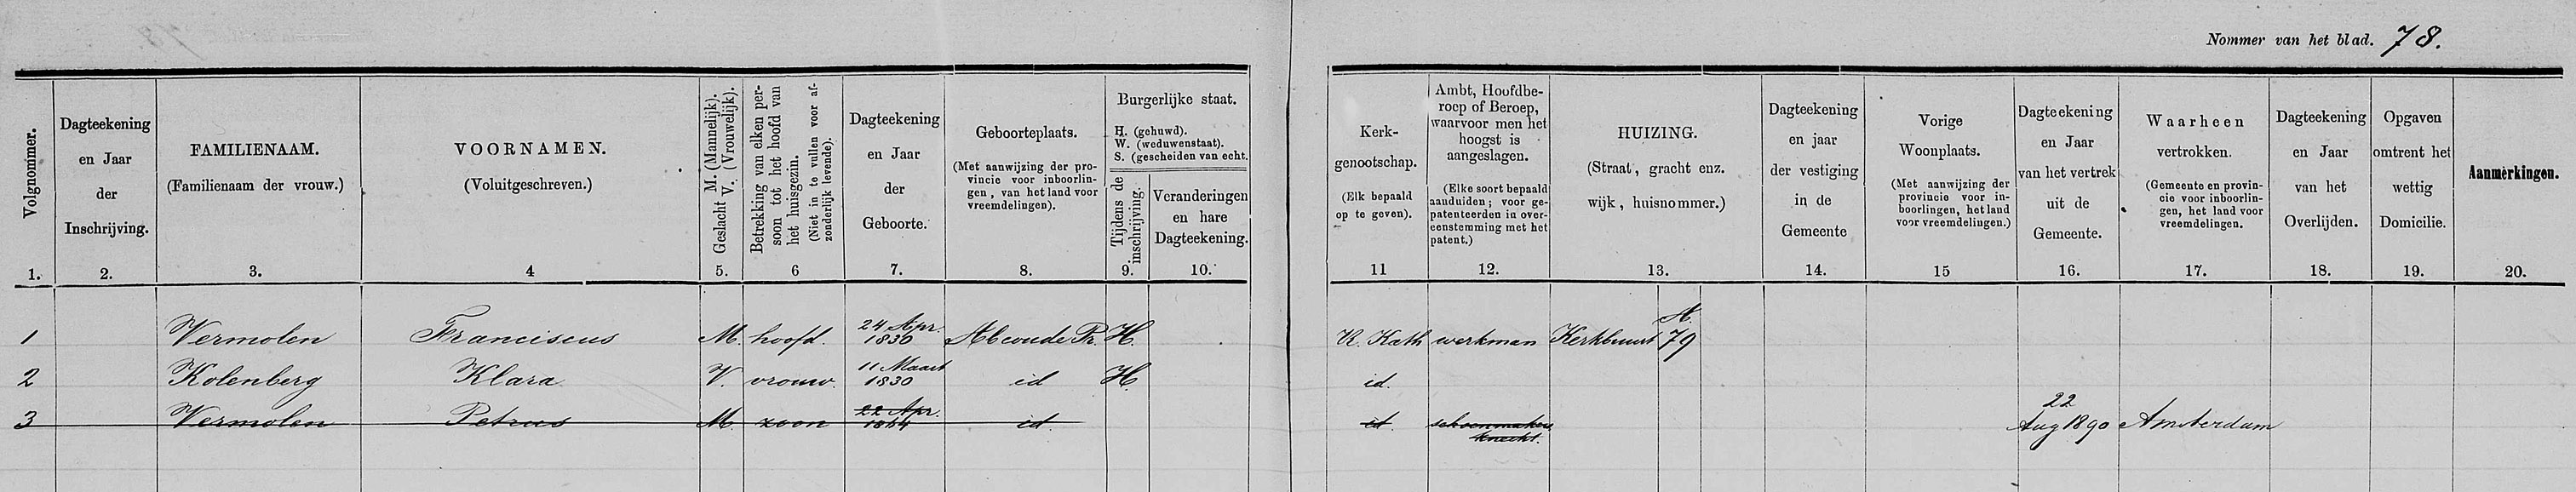 Nommer van het blad. 78.
Volgnommer.
1.
Dagteekening
en Jaar
der
Inschrijving.
2.
FAMILIENAAM.
(Familienaam der vrouw.)
3.
VOORNAMEN.
(Voluitgeschreven.)
4
Geslacht M. (Mannelijk).
V. (Vrouwelijk).
5.
Betrekking van elken per-
soon tot het hoofd van
het huisgezin.
(Niet in te vullen voor af-
zonderlijk levende).
6
Dagteekening
en Jaar
der
Geboorte.
7.
Geboorteplaats.
(Met aanwijzing der pro-
vincie voor inboorlin-
gen, van het land voor
vreemdelingen).
8.
Burgerlijke staat.
H. (gehuwd).
W. (weduwenstaat).
S. (gescheiden van echt.
Tijdens de
inschrijving.
9.
Veranderingen
en hare
Dagteekening.
10.
Kerk-
genootschap.
(Elk bepaald
op te geven).
11
Ambt, Hoofdbe-
roep of Beroep,
waarvoor men het
hoogst is
aangeslagen.
(Elke soort bepaald
aanduiden; voor ge-
patenteerden in over-
eenstemming met het
patent.)
12.
HUIZING.
(Straat, gracht enz.
wijk, huisnommer.)
13.
Dagteekening
en jaar
der vestiging
in de
Gemeente
14.
Vorige
Woonplaats.
(Met aanwijzing der
provincie voor in-
boorlingen, het land
voor vreemdelingen.)
15
Dagteekening
en Jaar
van het vertrek
uit de
Gemeente.
16.
Waarheen
vertrokken.
(Gemeente en provin-
cie voor inboorlin-
gen, het land voor
vreemdelingen.
17.
Dagteekening
en Jaar
van het
Overlijden.
18.
Opgaven
omtrent het
wettig
Domicilie.
19.
Aanmerkingen.
20.
1 Vermolen Franciscus M. hoofd. 24 Apr. 1830 Abcoude Pr. H. R. Kath werkman Kerkbuurt A. 79
2 Kolenberg Klara V. vrouw. 11 Maart 1830 id H. id.
3 Vermolen Petrus M. zoon 22 Apr. id id schoenmakers knecht. 22 Aug 1890 Amsterdam